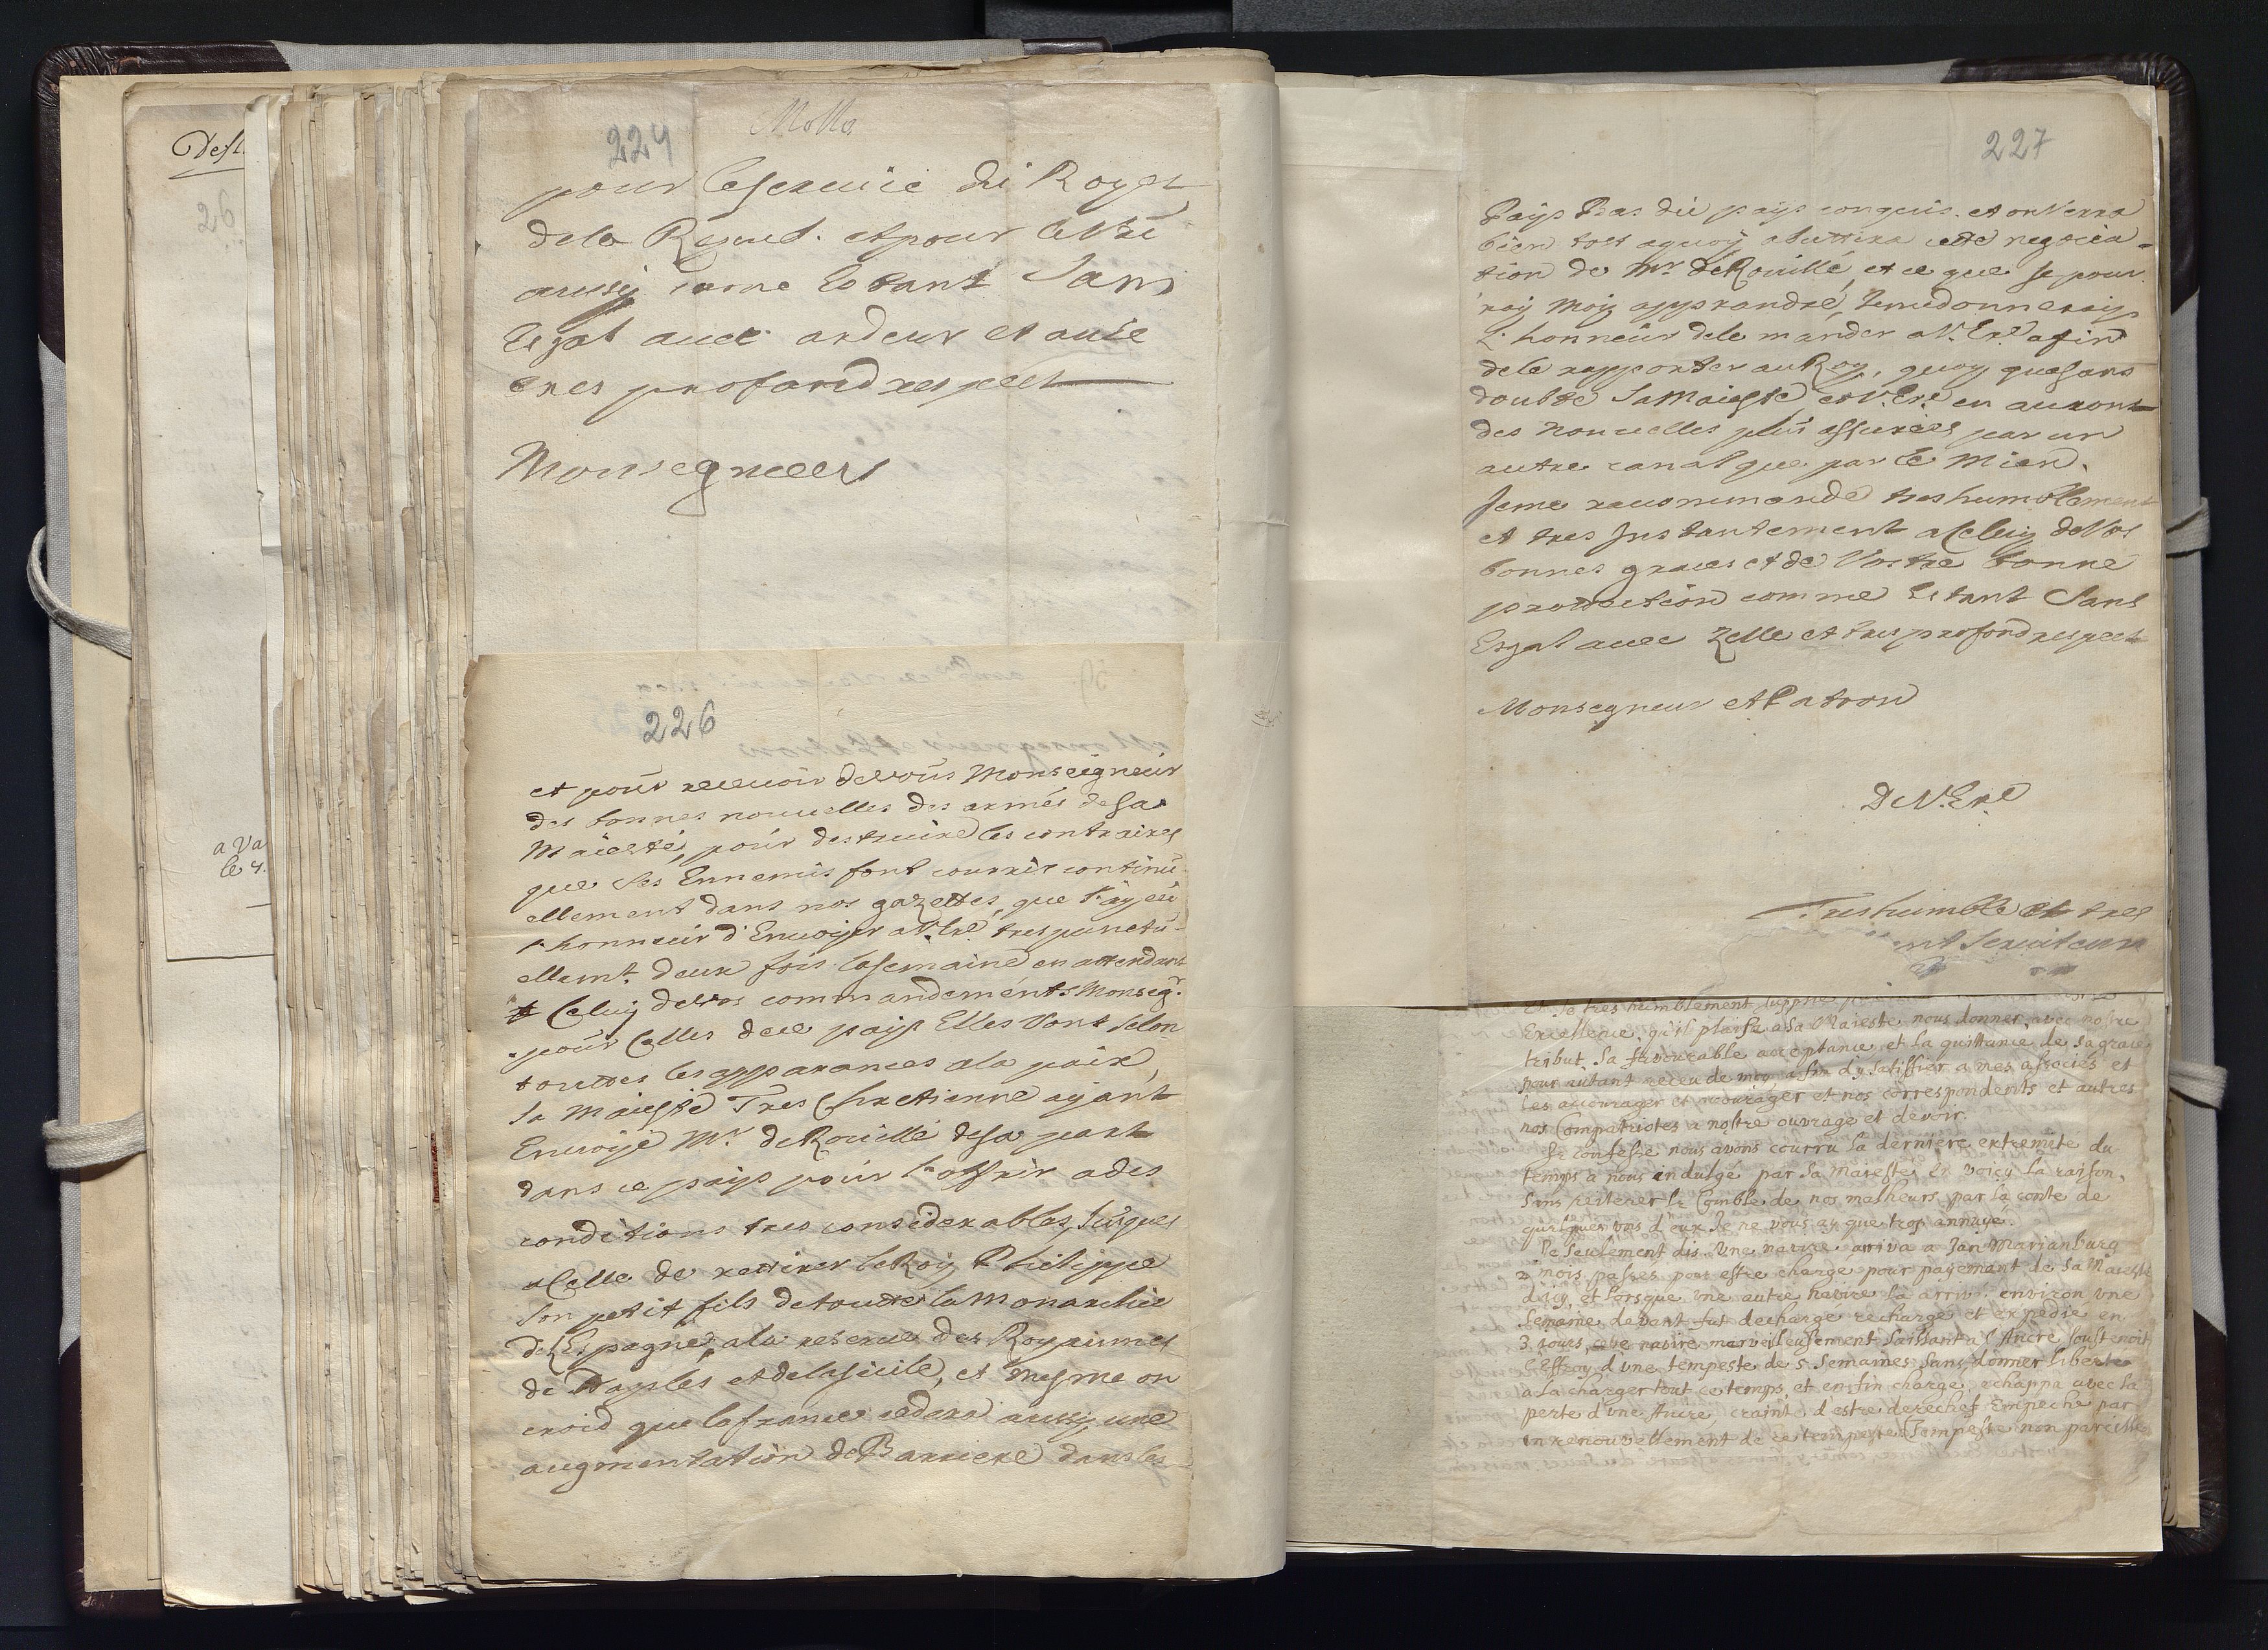 Dest
26
a Va
le 4.
224
Molla
pour le seruice du Roy et
de la Republ. et pour le Vre
aussy come estant sans
Esgal auec ardeur et auec
tres profond respect
Monsegneur
226
et pour receuoir de vous Monseigneur
des bonnes nouuelles des armés de sa
Maiesté, pour destruire les contraires
que ses Ennemis font courrir continu-
ellement dans nos gazettes, que i'ay eu
l'honneur d'Enuoyer a V. Exe tres punctu-
ellemt. deux fois la semaine en attendant
Celuy de vos commandements Monsegr.
pour Celles de ce pays Elles vont selon
touttes les apparances a la paix,
sa Maiesté Tres Chretienne ayant
Enuoyé Mr. de Roüillé de sa part
dans ce pays pour l'offrir a des
conditions tres considerables, Iusques
a Celle de rettirer le Roy Philippe
son petit fils de toutte la Monarchie
de l'Espagne, a la reserue des Royaumes
de Naples et de la Sicile, et mesme on
croid que la france cedera aussy une
augmentation de Barriere dans les
227
Pays Bas du pays conquis. et on Verra
bien tost a quoy abuttira cette negocia-
tion de Mr. de Rouillé, et ce que Je pour-
ray moy apprandre, Je me donneray
l'honneur de le mander a V. Exe afin
de le rapporter au Roy, quoy que sans
doubte Sa Maiesté et V. Exe en auront
des nouuelles plus assurées par un
autre canal que par le mien.
Je me recommande tres humblement
et tres Instantement a Celuy de Vos
bonnes graces et de Vostre bonne
protection comme Estant Sans
Esgal auec Zelle et tres profond respect
Monsegneur et Patron
De V. Exe
Tres humble et tres
nt Seruiteur
Et Je tres humblement supplie
Excellence, qu'il plaise a sa Maiesté nous donner avec nostre
tribut, sa favourable acceptance et la quittance de sa grace
pour autant receu de moy, afin d'y satisfier a mes associés et
les accourager et recourager et nos correspondents et autres
nos Compatriotes a nostre ouvrage et devoir.
Je confesse nous avons courru la derniere extremité du
temps a nous indulgé par sa maiesté, en voicy la raison,
sans reiterer le Comble de nos malheurs par la conte de
quelques uns d'eux Je ne vous ay que trop annuyé.
Je seulement dis Une navire arriva a Jan Marianburg
2 mois passes pour estre chargé pour payemant de Sa Maiesté
d'icy, et lorsque une autre navire la arrivé environ une
Semaine devant fut dechargé rechargé et expedié en
3 jours, cette navire merveilleusement saissant n'l' Ancre soustenoit
l'Effroy d'une tempeste de 5 Semaines, sans donner liberté
a la charger tout ce temps, et en fin chargé, echappa avec la
perte d'une Ancre, craint d'estre derechef Empeché par
un renouvellement de ce tempeste Tempeste non pareille